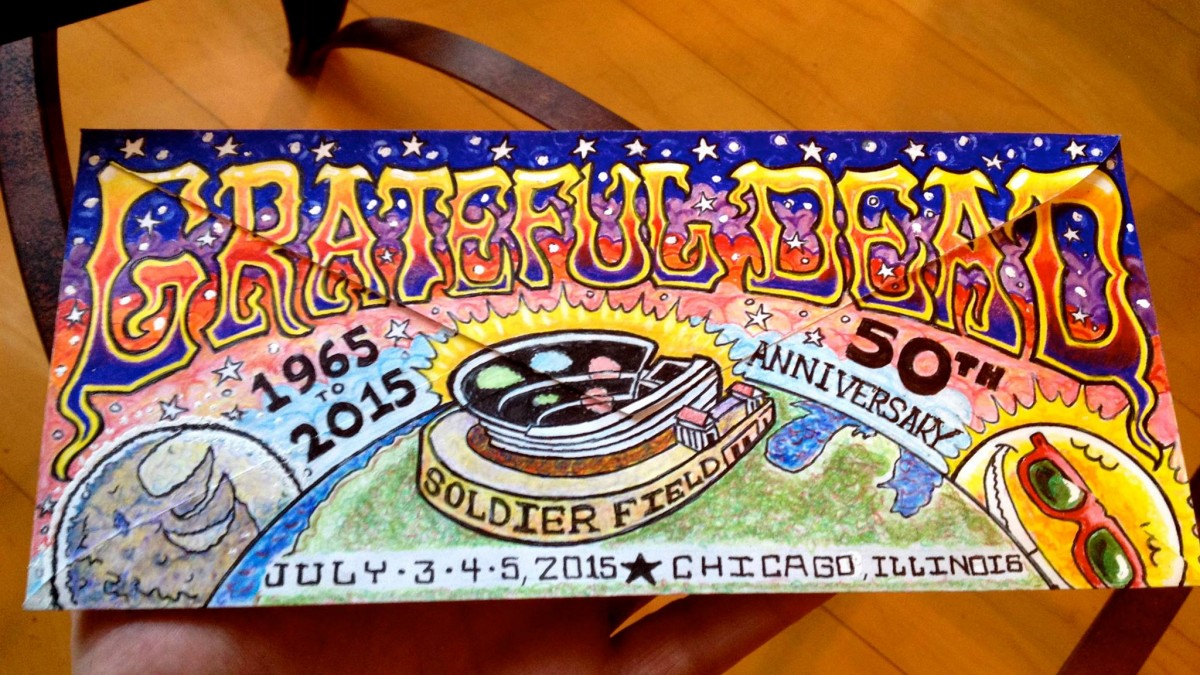 GRATEFUL DEAD
1965
TO
2015
50TH
ANNIVERSARY
SOLDIER FIELD
JULY·3·4·5, 2015★CHICAGO, ILLINOIS